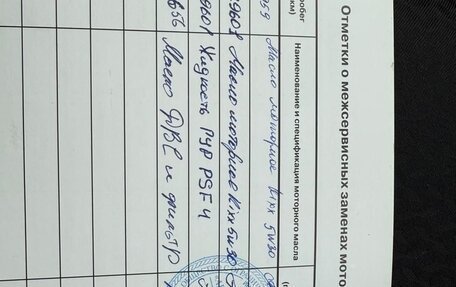 Отметки о межсервисных заменах мото
робег
км)
Наименование и спецификация моторного масла
(
959 Масло моторное Kixx 5W30
9601 Масло моторное Kixx 5w30
9601 Жидкость ГУР PSF4
Масло ДВС и фильтр